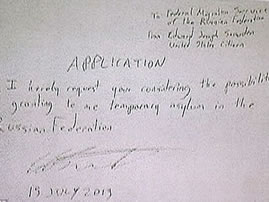 To Federal Migration Service
of the Russian Federation
from Edward Joseph Snowden
United States Citizen
APPLICATION
I hereby request your considering the possibility
granting to me temporary asylum in the
Russian Federation
15 JULY 2013